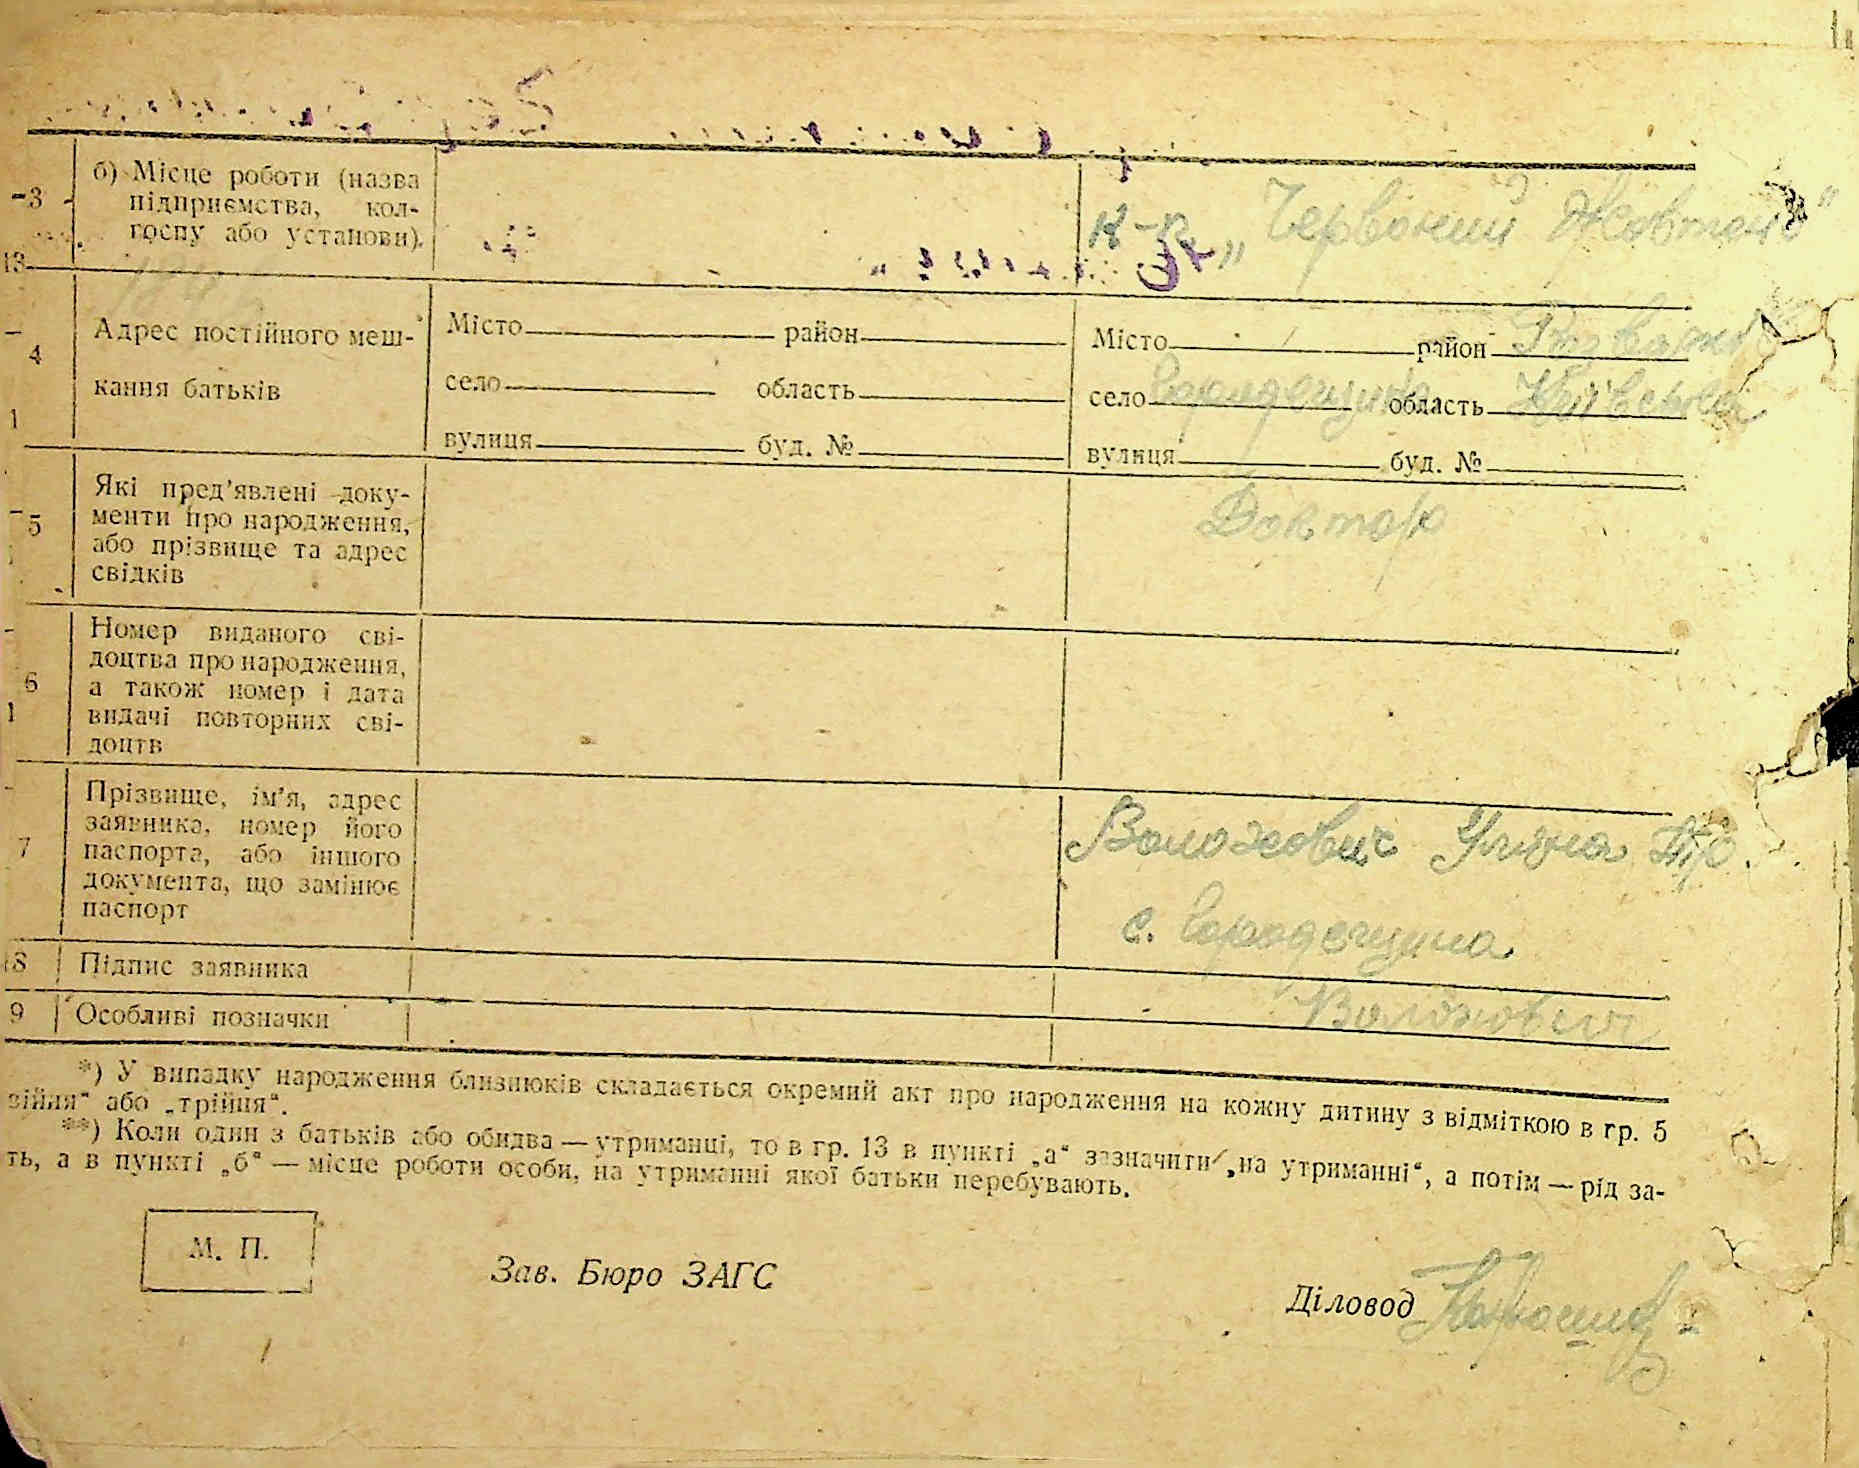 3
б) Місце роботи (назва
підприємства, кол-
госпу або установи).
к-п „Червоний Жовтень"
13
4
Адрес постійного меш-
кання батьків
Місто район
село область
вулиця буд. №
Місто район
село Городещина область Київська
вулиця буд. №
1
5
Які пред'явлені доку-
менти про народження,
або прізвище та адрес
свідків
Доктор
6
1
Номер виданого сві-
доцтва про народження,
а також номер і дата
видачі повторних сві-
доцтв
7
Прізвище, ім'я, адрес
заявника, номер його
паспорта, або іншого
документа, що замінює
паспорт
Волохович Уляна
с. Городещина
8
Підпис заявника
Волохович
9
Особливі позначки
*) У випадку народження близнюків складається окремий акт про народження на кожну дитину з відміткою в гр. 5
війня" або „трійня".
**) Коли один з батьків або обидва — утриманці, то в гр. 13 в пункті „а" зазначити „на утриманні", а потім — рід за-
ть, а в пункті „б" — місце роботи особи, на утриманні якої батьки перебувають.
М. П.
Зав. Бюро ЗАГС
Діловод